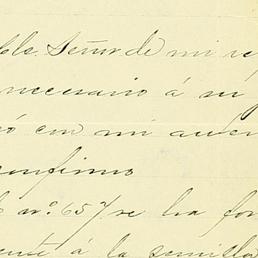 ble. Señor de mi
necesario á su
ó con mi
confirmo
nº. 657 se ha for
ente á la semilla